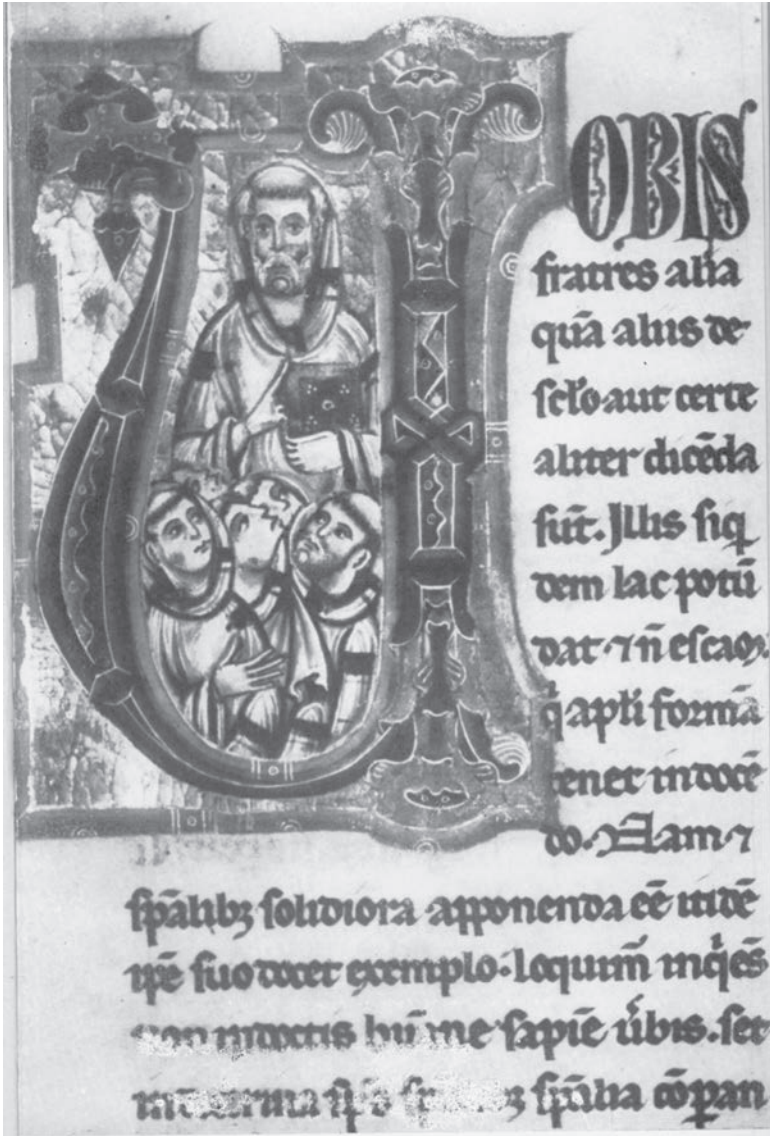 VOBIS
fratres alia
quā aliis de
sc̄lo aut certe
aliter dicēda
sūt. Illis siq̄
dem lac potū
dat ⁊ n̄ escaꝫ.
q̇ apl̄i formā
tenet in docē
do. Nam ⁊
sp̄alibꝫ solidiora apponenda eē itidē
ip̄e suo docet exemplo. loquim̄ inq̇ēs
non in doctis hum̄ane sapiē ūbis. set
in doctrina sp̄ū sp̄alibꝫ sp̄alia cōparan